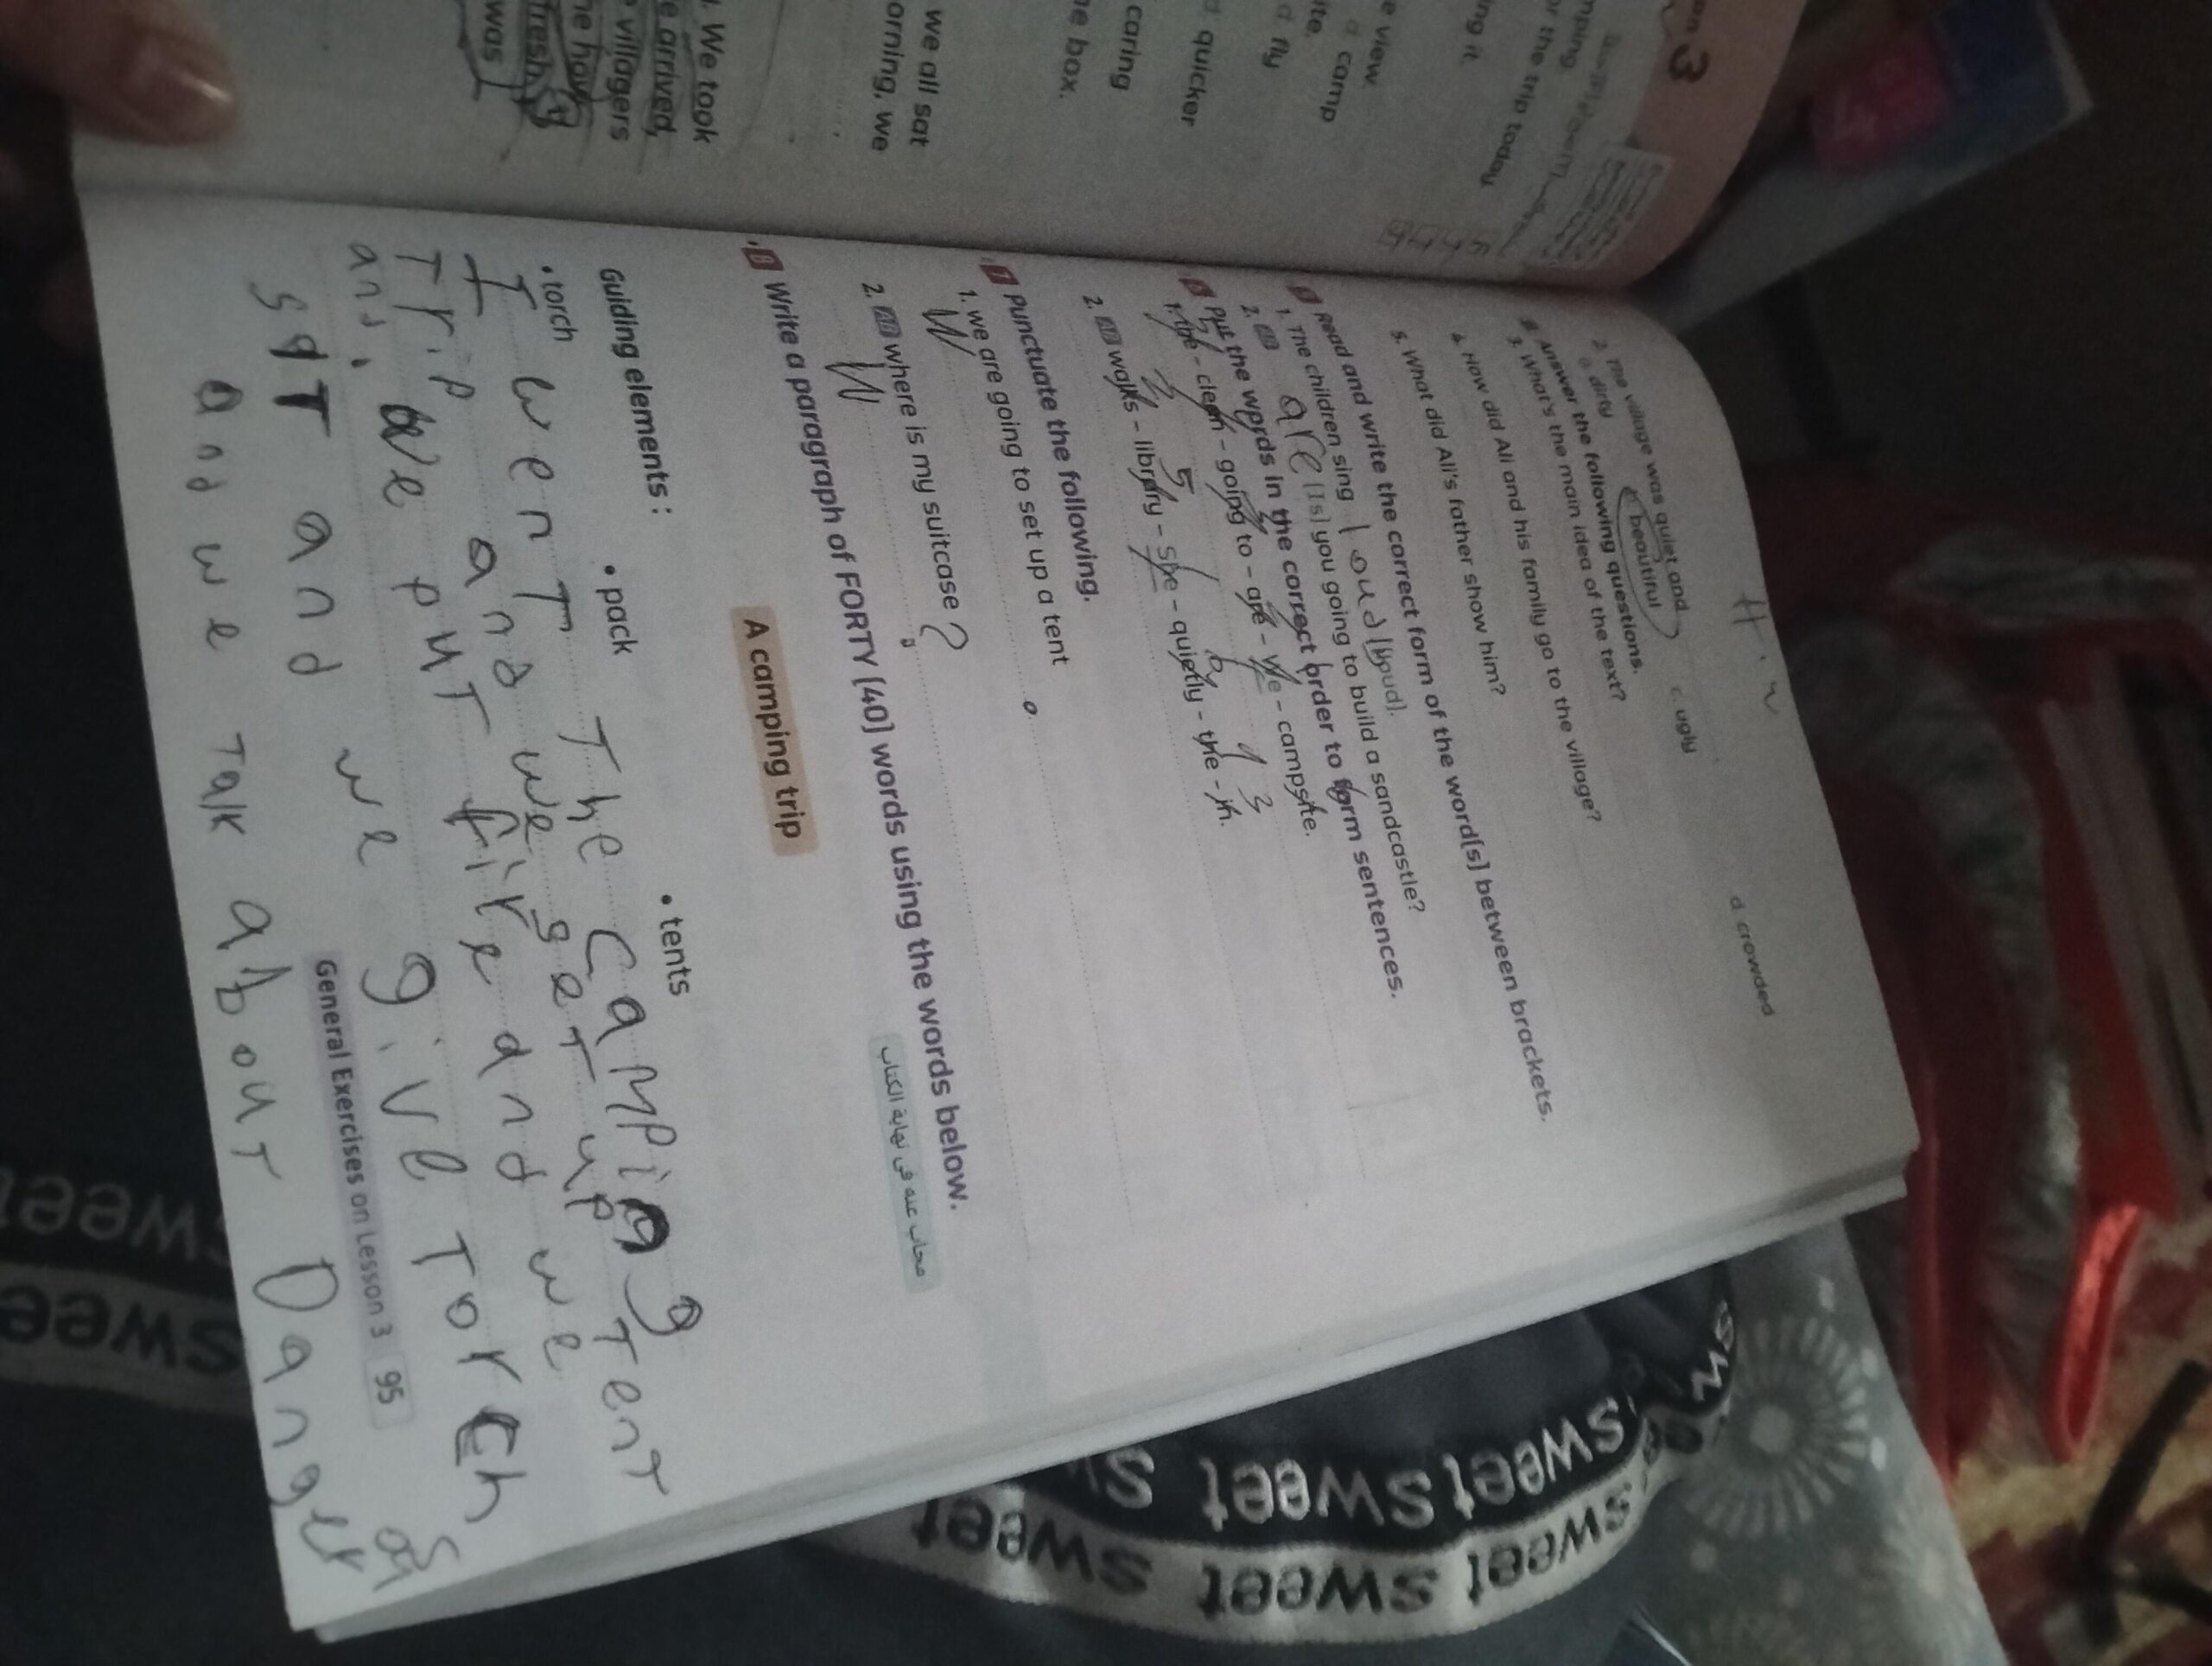 We took
e arrived,
villagers
fresh
was
we all sat
orning, we
caring
he box.
quicker
fly
camp
e view.
ng it.
or the trip today
mping
3
2. The village was quiet and
dirty
beautiful
c. ugly
d. crowded
Answer the following questions.
3. What's the main idea of the text?
4. How did Ali and his family go to the village?
5. What did Ali's father show him?
Read and write the correct form of the word[s] between brackets.
1. The children sing loud [loud].
2. are [Is] you going to build a sandcastle?
6 Put the words in the correct order to form sentences.
1. the - clean - going to - are - We - campsite.
2. walks - library - she - quietly - the - in.
7 Punctuate the following.
1. we are going to set up a tent
2. where is my suitcase ?
8 Write a paragraph of FORTY [40] words using the words below.
مجاب عنه في نهاية الكتاب
A camping trip
Guiding elements :
• torch • pack • tents
I went The camping Tent
Trip and we get up
and we put fire and we
sat and we give Torch
and we Talk about Danger
General Exercises on Lesson 3 95
sweet sweet
sweet sweet
sweet
sweet